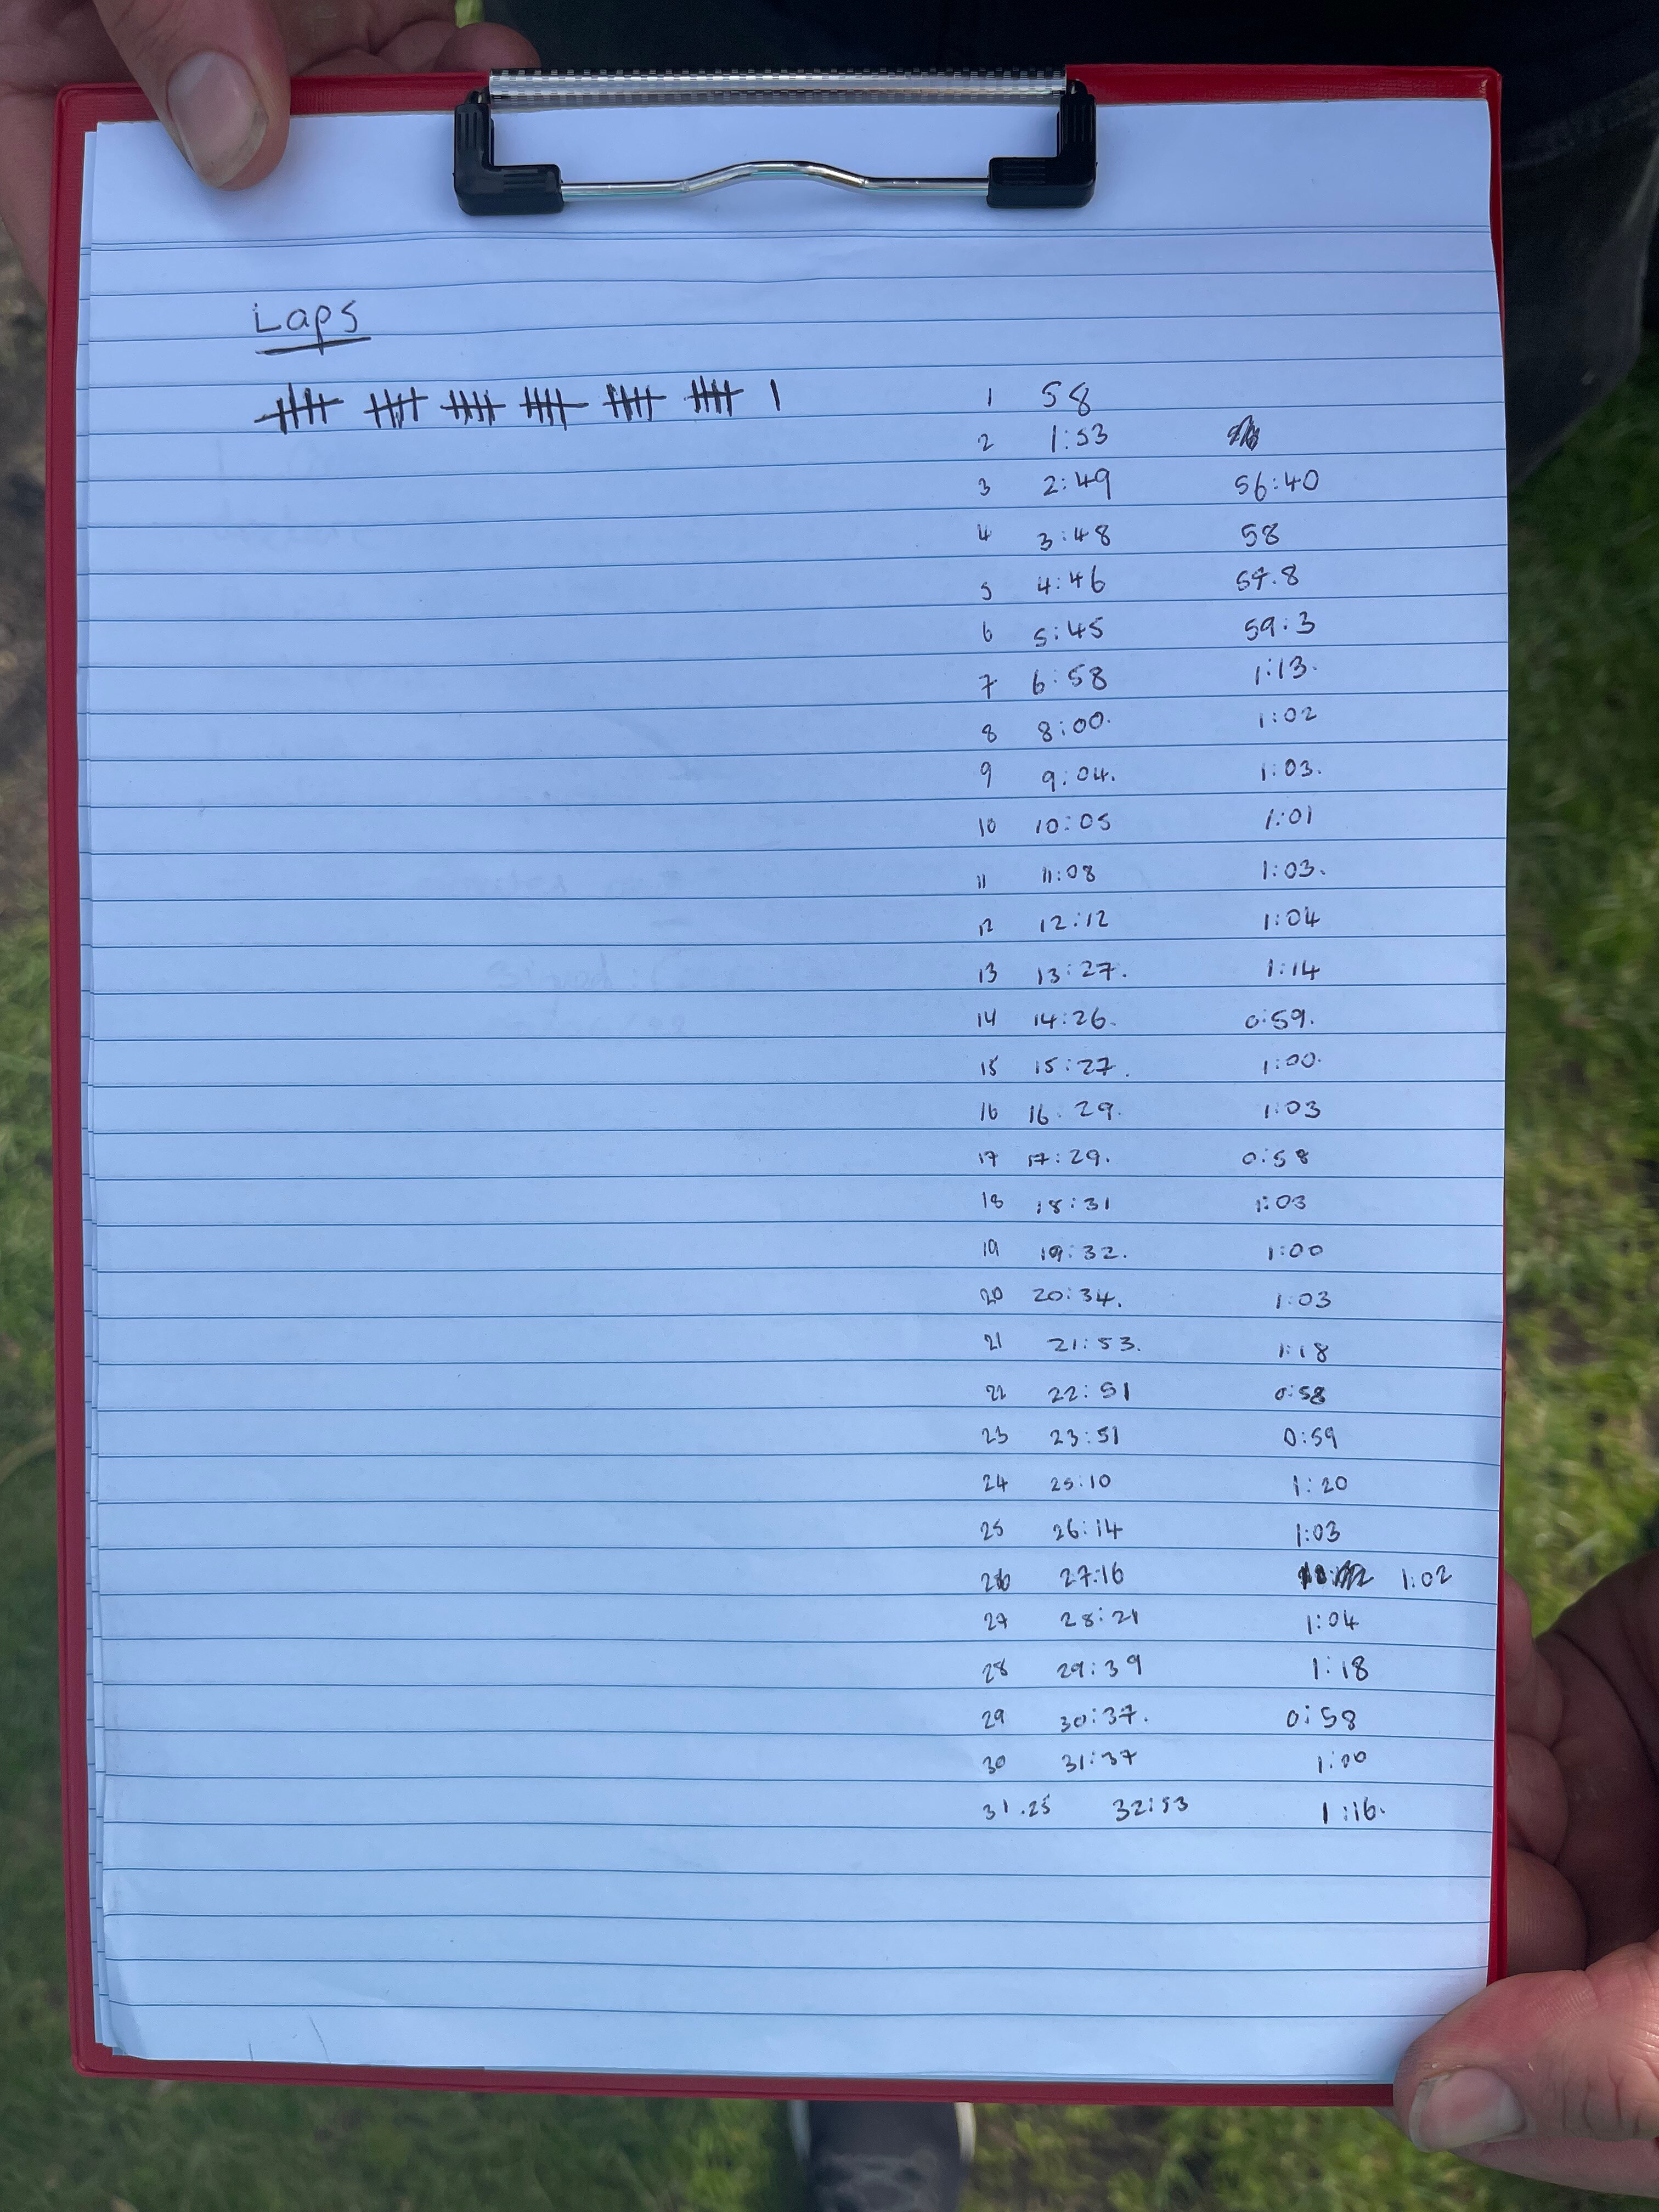 Laps
1 58
2 1:53
3 2:49 56:40
4 3:48 58
5 4:46 57.8
6 5:45 59:3
7 6:58 1:13.
8 8:00. 1:02
9 9:04. 1:03.
10 10:05 1:01
11 11:08 1:03.
12 12:12 1:04
13 13:27. 1:14
14 14:26. 0:59.
15 15:27. 1:00.
16 16:29. 1:03
17 17:29. 0:58
18 18:31 1:03
19 19:32. 1:00
20 20:34. 1:03
21 21:53. 1:18
22 22:51 0:58
23 23:51 0:59
24 25:10 1:20
25 26:14 1:03
26 27:16 1:02
27 28:21 1:04
28 29:39 1:18
29 30:37. 0:58
30 31:37 1:00
31.25 32:53 1:16.